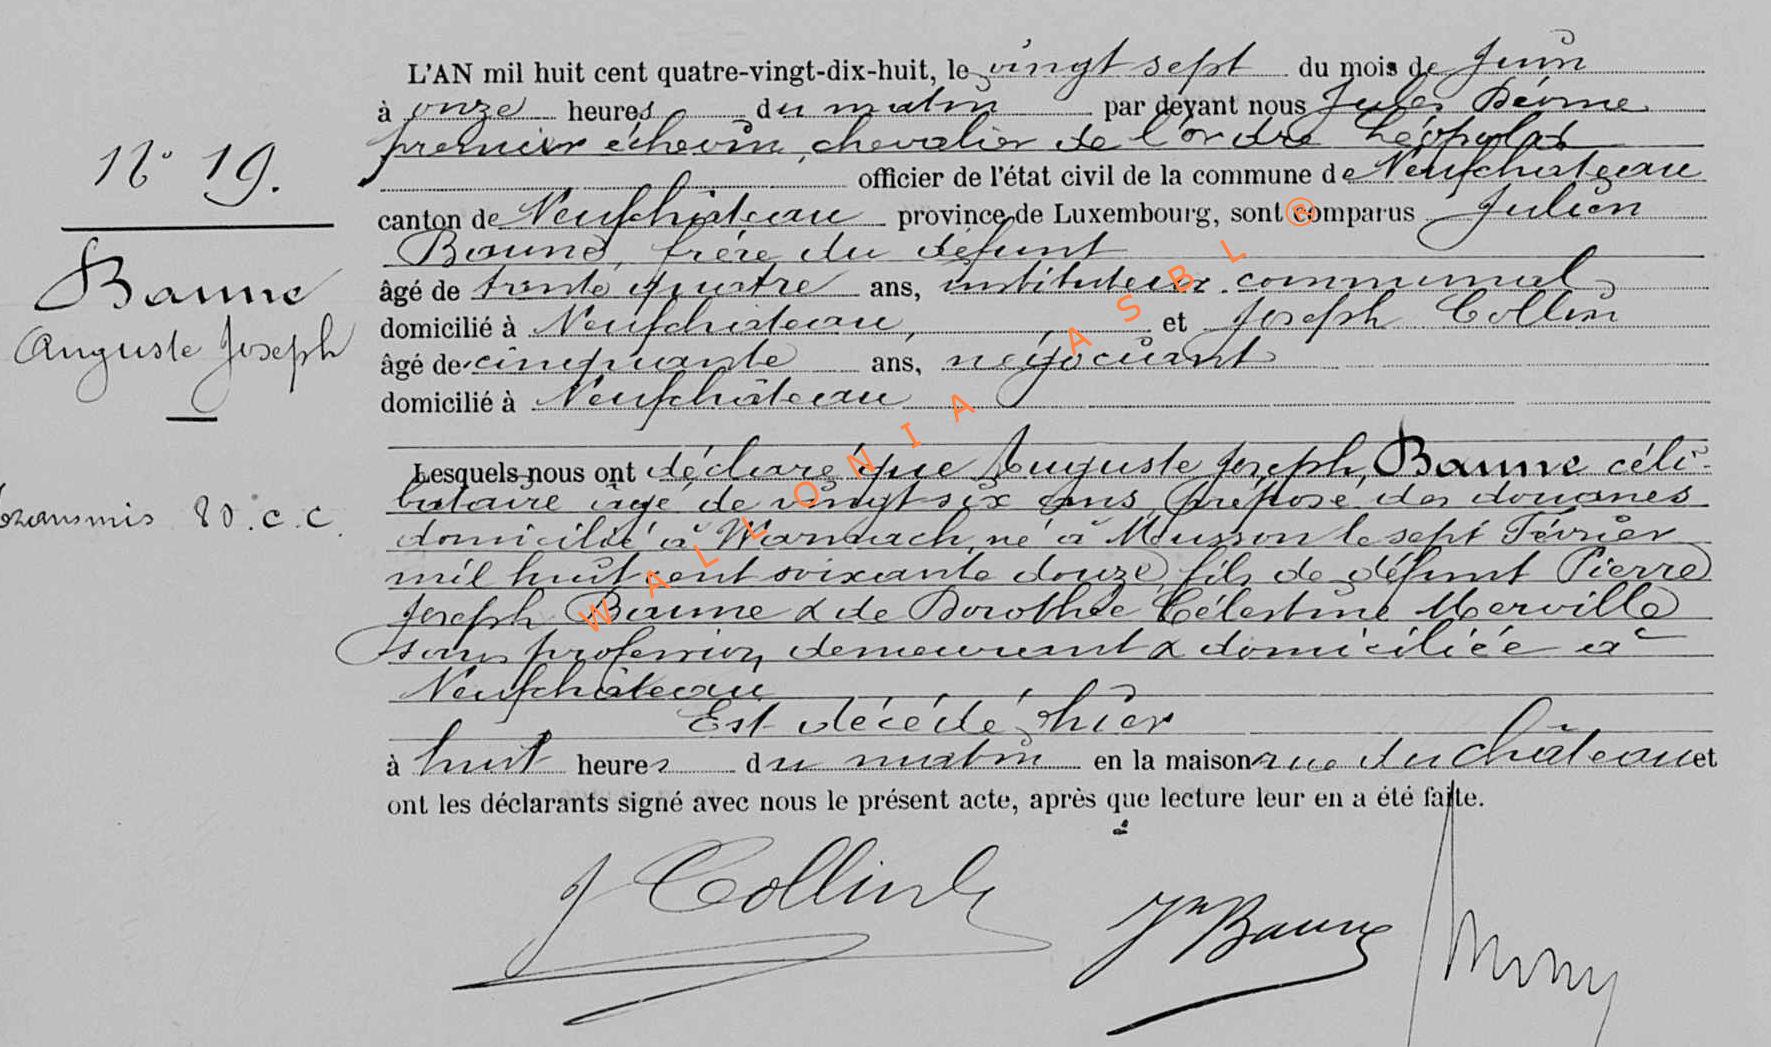 L'AN mil huit cent quatre-vingt-dix-huit, le vingt sept du mois de Juin
à onze heures du matin par devant nous Jules
premier échevin, chevalier de l'ordre Léopold
officier de l'état civil de la commune de Neufchateau
canton de Neufchâteau province de Luxembourg, sont comparus Julien
Baune, frère du défunt
âgé de trente quatre ans, instituteur communal
domicilié à Neufchateau, et Joseph Collin
âgé de cinquante ans, négociant
domicilié à Neufchâteau
Lesquels nous ont déclaré que Auguste Joseph, Baune céli-
bataire âgé de vingt six ans, préposé des douanes
domicilié à Warnach, né à Musson le sept Février
mil huit cent soixante douze, fils de défunt Pierre
Joseph Baune & de Dorothée Célestine Merville
sans profession, demeurant & domiciliée à
Neufchâteau
Est décédé hier
à huit heures du matin en la maison rue du Château et
ont les déclarants signé avec nous le présent acte, après que lecture leur en a été faite.
J Collin
Jn Baune
N° 19.
Baune
Auguste Joseph
transmis 80.c.c.
WALLONIA ASBL ®